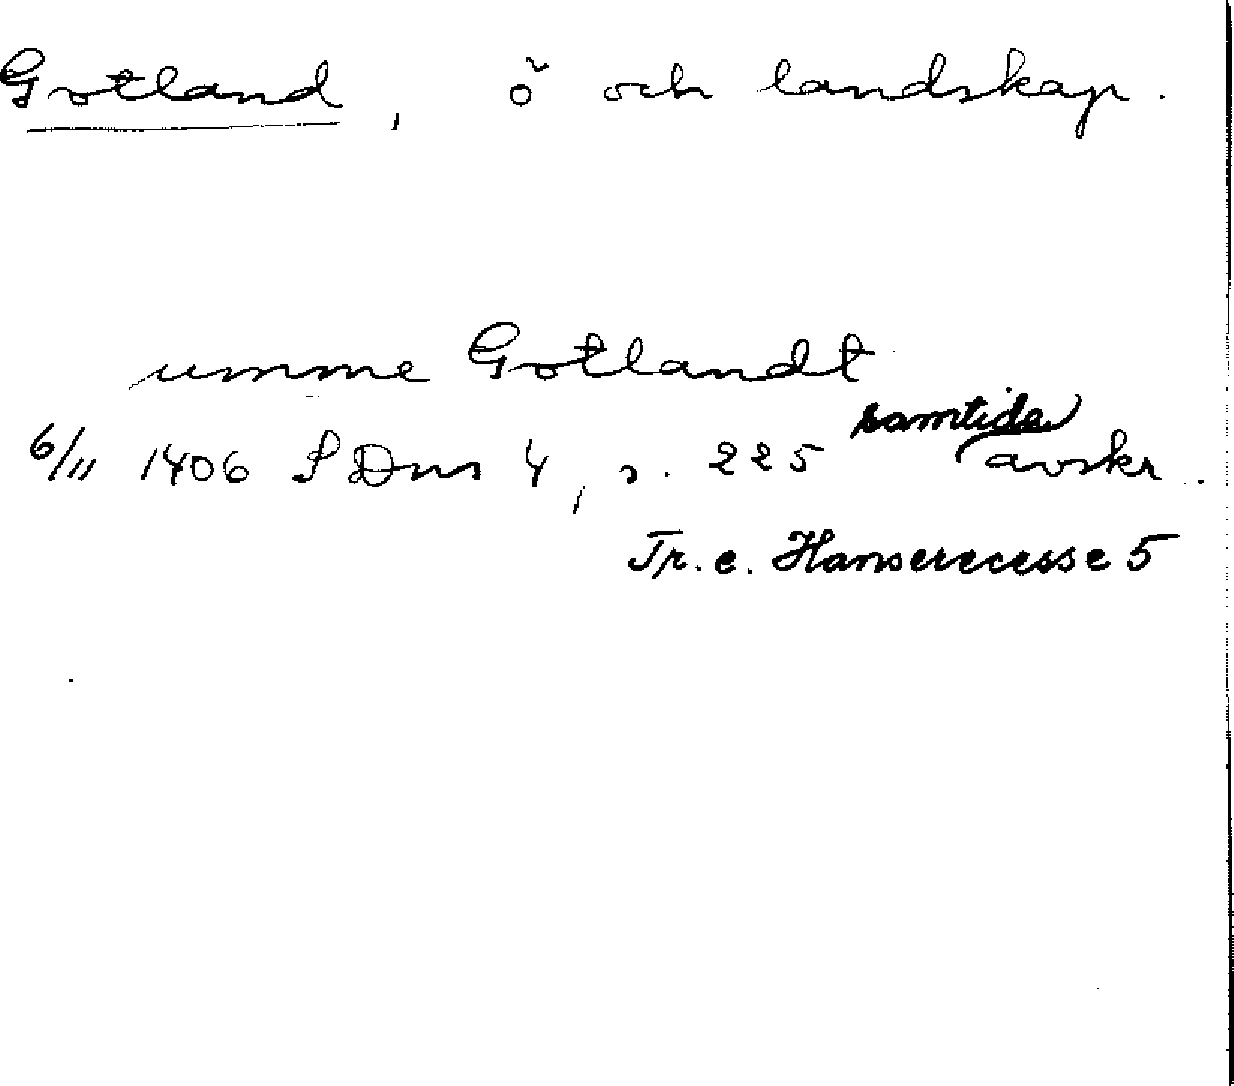 Gotland, ö och landskap.
umme Gotlandt
6/11 1406 SDns 4, s. 225 samtida avskr.
Tr. e. Hanserecesse 5